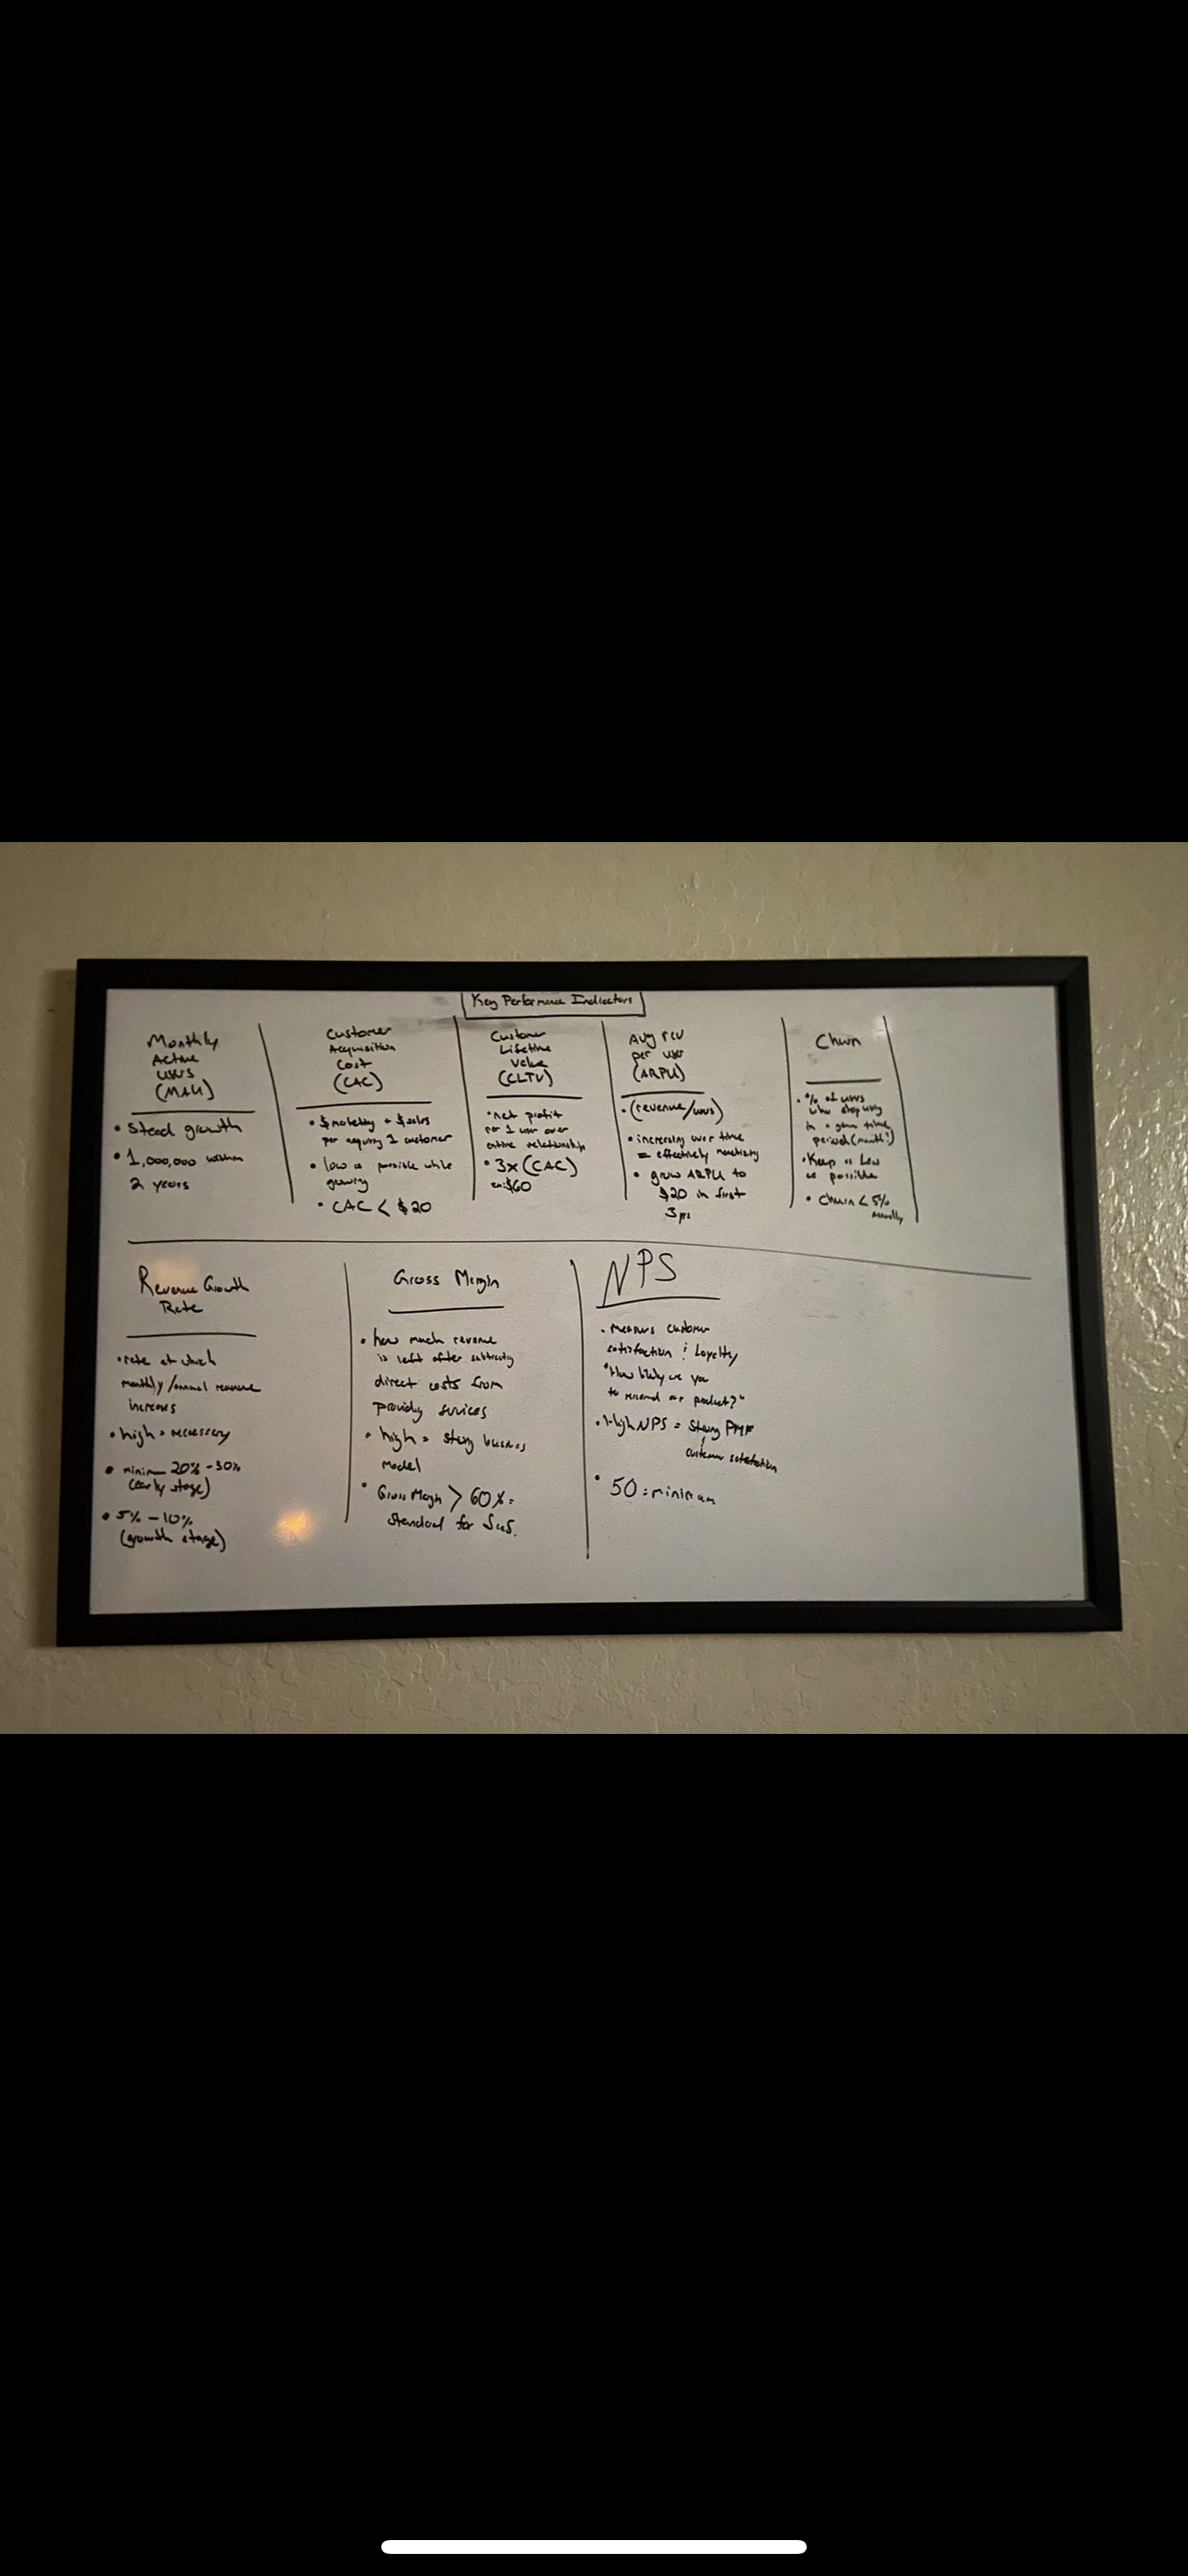 Key Performance Indicators
Monthly
Active
Users
(MAU)
• Stead growth
• 1,000,000 within
2 years
Customer
Acquisition
Cost
(CAC)
• $marketing + $sales
per acquiring 1 customer
• low as possible while
growing
• CAC < $20
Customer
Lifetime
Value
(CLTV)
• net profit
per 1 user over
entire relationship
• 3x (CAC)
$60
Avg rev
per user
(ARPU)
• (revenue/users)
• increasing over time
= effectively monetizing
• grow ARPU to
$20 in first
Churn
• % of users
who stop using
in a given time
period (month?)
• Keep as low
as possible
• Churn < 5%
annually
Revenue Growth
Rate
• rate at which
monthly/annual revenue
increases
• high = necessary
• minimum 20% - 30%
(early stage)
• 5% - 10%
(growth stage)
Gross Margin
• how much revenue
is left after subtracting
direct costs from
providing services
• high = strong business
model
• Gross Margin > 60% =
standard for SaaS.
NPS
• measures customer
satisfaction & Loyalty
"How likely are you
to recommend our product?"
• High NPS = Strong PMF
customer satisfaction
• 50 = minimum